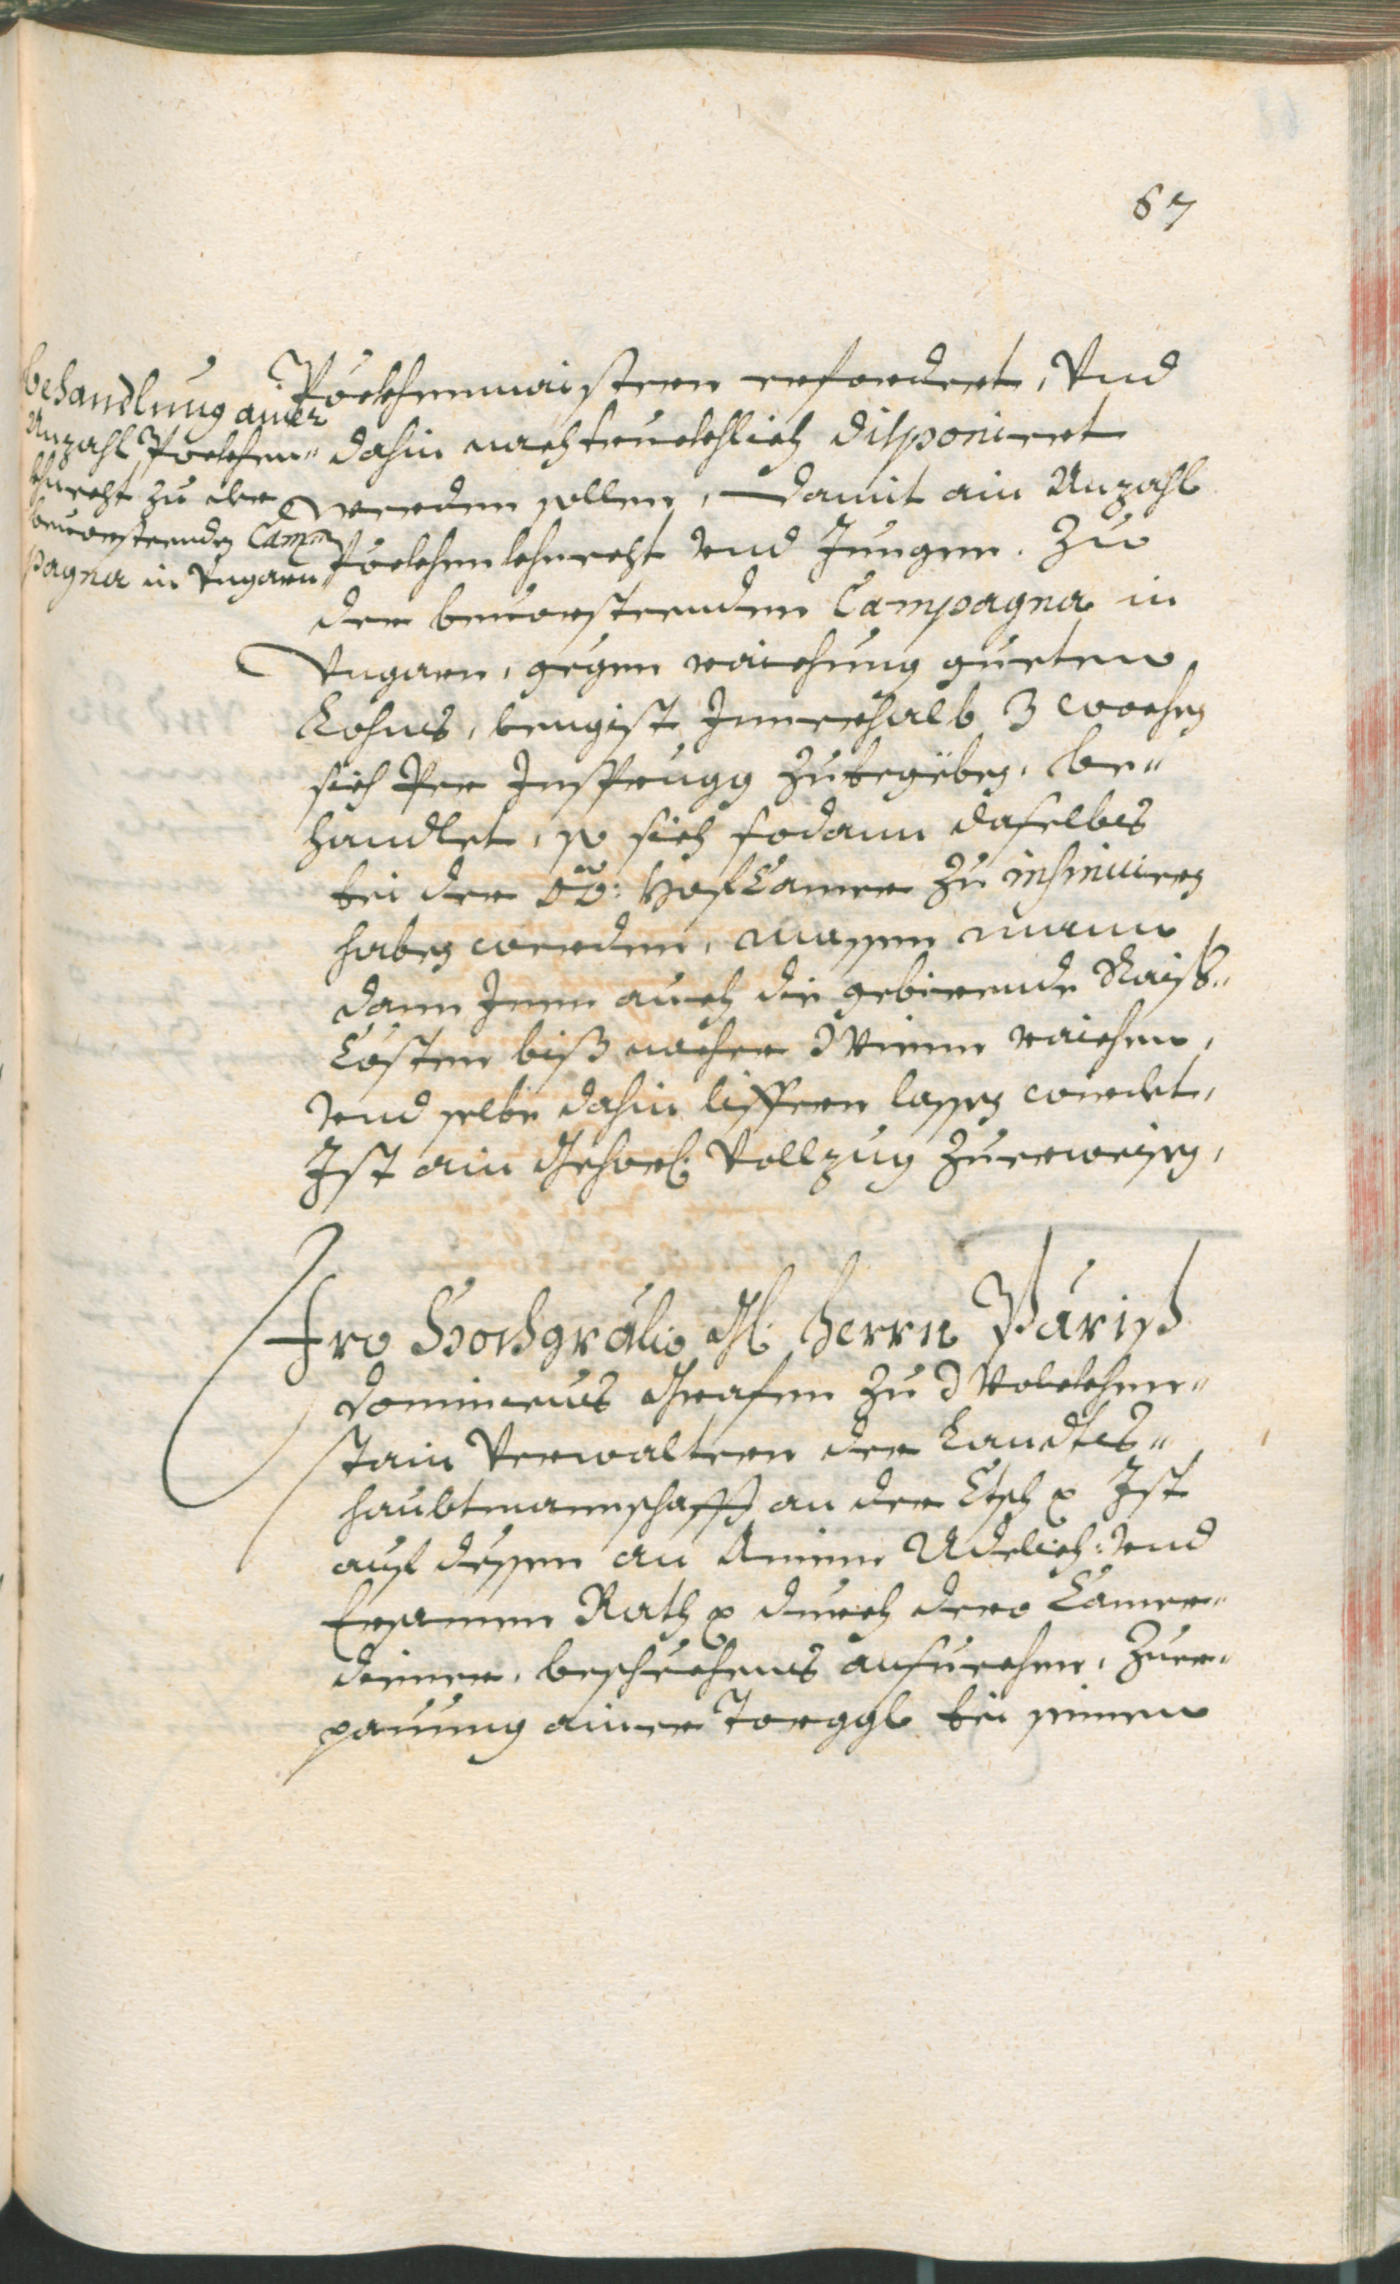 67
behandlung ainer
Anzahl Pöckhen-
khnecht zu der
bevorsteenden Cam-
pagna in Ungarn
Pöckhenmaistern erfordert, Vnd
dahin nachtruckhlich disponiert
werden sollen, damit ain Anzahl
Pöckhenkhnecht vnd Jungen, Zu
der bevorsteenden Campagna in
Vngarn, gegen raichung gueten
Lohns, lengist Innerhalb 3 wochen
sich per Insprugg zubegeben, be-
handlet, so sich sodann daselbs
bei der OÖ: HofCamer zu insinuieren
haben werden, massen mann
dann Inen auch die gebirende Raiß-
Cossten biß nacher Wienn raichen,
vnd selbe dahin liffern lassen werdet,
Ist ain Gehors: Vollzug zuerweisen,
Iro Hochgräflic: Gl: Herrn Päriß
Dominicus Grafen zu Wolckhen-
stain Verwaltern der Landts-
haubtmannschafft an der Etsch p Ist
auf dessen an Ainen Adelich: vnd
Ersamen Rath p durch dero Camer-
diener, beschechens ansuechen, Zuer-
pauung ainer Torggl bei seinen